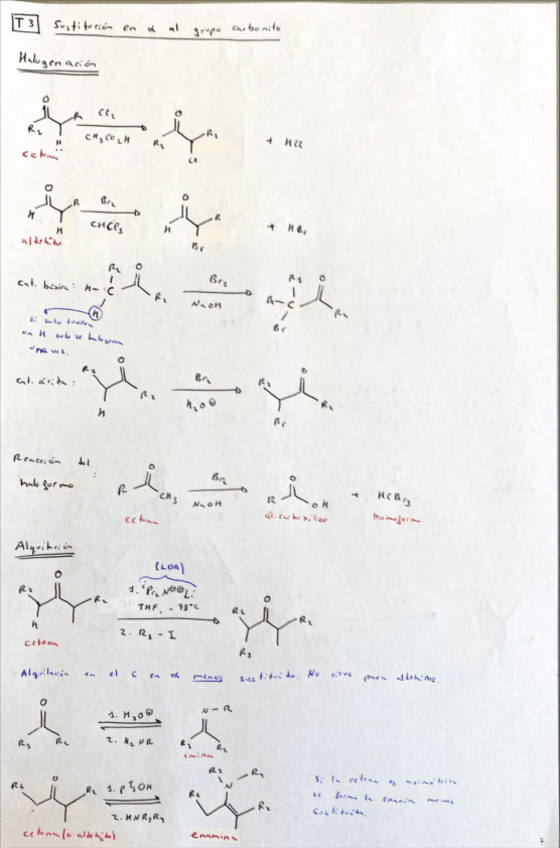 T 3 Sustitución en α al grupo carbonilo
Halogenación
O R₁ R₂ H Cl₂ CH₃CO₂H O R₁ R₂ Cl + HCl
cetona
O H R H Br₂ CHCl₃ O H R Br + HBr
aldehído
cat. básica: R₁ H C O R₂ H Br₂ NaOH R₁ C O R₂ Br
si solo tuviera
un H solo se halogena
una vez.
cat. ácida: R₁ O R₂ H Br₂ H₃O⊕ R₁ O R₂ Br
Reacción del
haloformo: O R CH₃ Br₂ NaOH O R OH + HCBr₃
cetona ác. carboxílico bromoformo
Alquilación
(LDA)
R₁ O R₂ H 1. ⁱPr₂N⊖⊕Li THF, -78°C 2. R₃-I R₁ O R₂ R₃
cetona
Alquilación en el C en α menos sustituido. No sirve para aldehídos.
O R₁ R₂ 1. H₃O⊕ 2. H₂NR N-R R₁ R₂
imina
R₁ O R₂ 1. pTsOH 2. HNR₃R₄ R₃ N R₄ R₁ R₂
cetona (o aldehído) enamina
Si la cetona es asimétrica
se forma la enamina menos
sustituida.
7